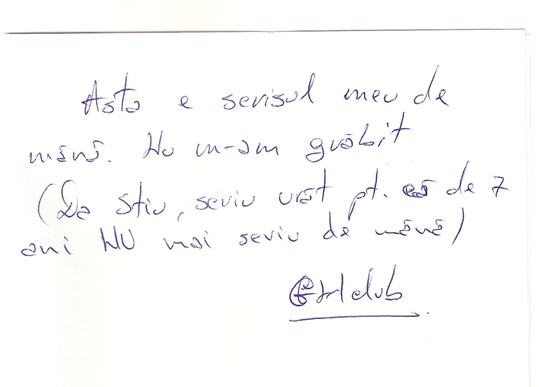 Asta e scrisul meu de
mână. Nu m-am grăbit
(Da știu, scriu urât pt. că de 7
ani NU mai scriu de mână)